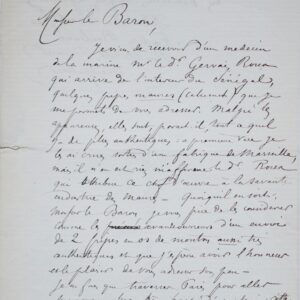 Monsieur le Baron,
Je viens de recevoir d'un médecin
de la marine Mr le Dr Gervais, Roux
qui arrive de l'interieur du Sénégal,
quelques pipes maures (calumet) que je
me permets de vous adresser. Malgré les
apparences, elles sont, parait-il, tout ce qu'il
y a de plus authentiques - à première vue je
les ai crues sorties d'une fabrique de Marseille,
mais il n'en est rien m'affirme le Dr
qui attribue ce chef d'œuvre à la savante
industrie des Maures - Quoiqu'il en soit,
Monsieur le Baron, je vous prie de les considérer
comme les avant-coureurs d'un envoi
de 2 pipes en os de mouton aussi très
authentiques et que j'espère avoir l'honneur
et le plaisir de vous adresser sous peu -
Je ne fais que traverser Paris pour aller